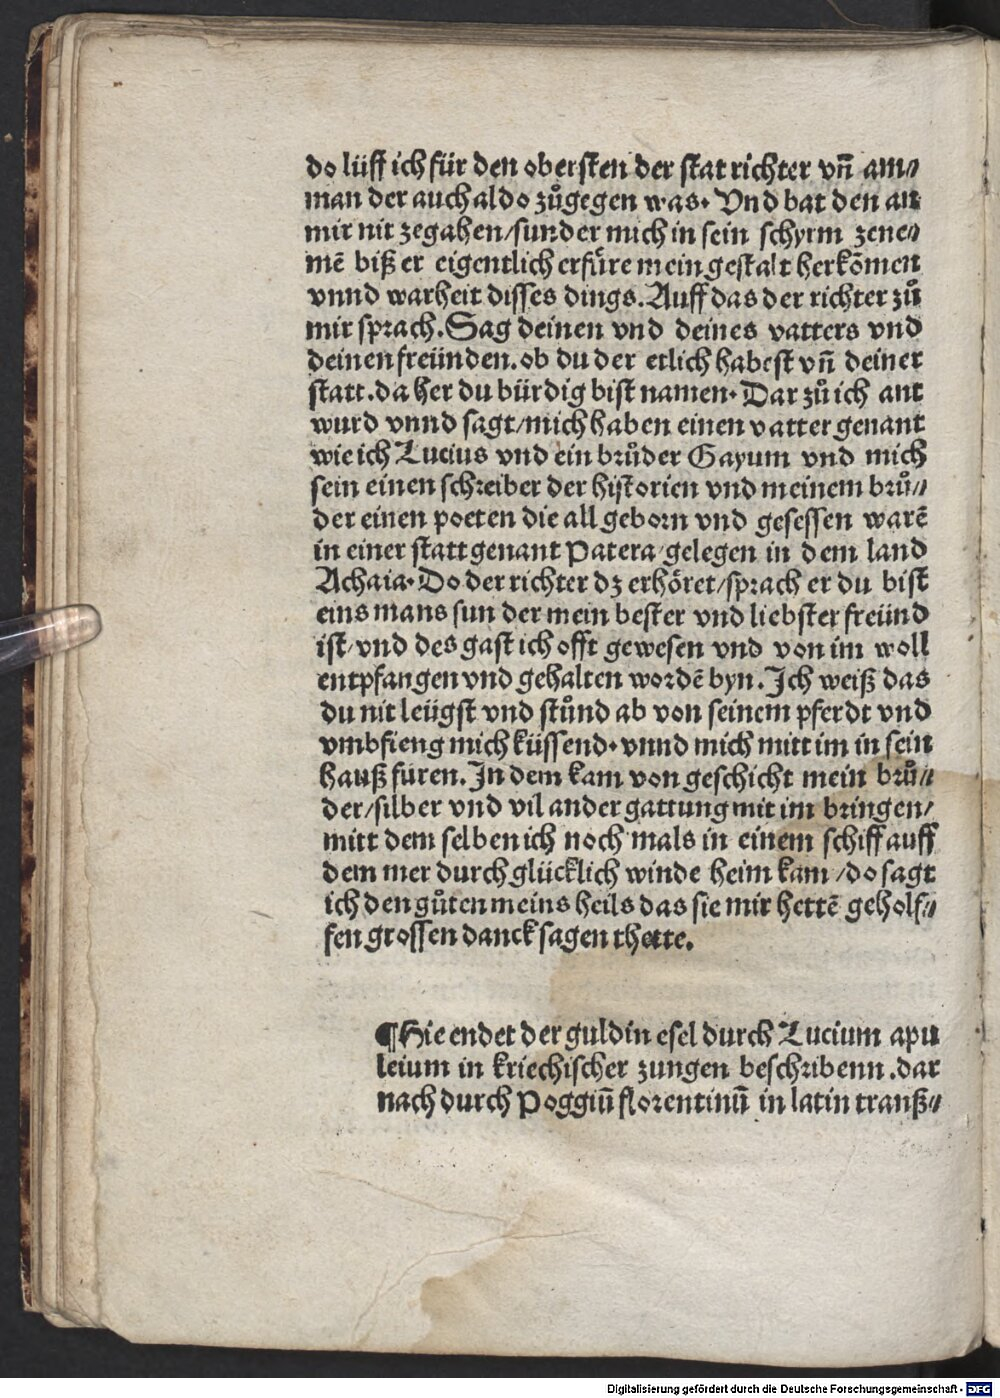 do lüff ich für den obersten der stat richter vñ am⸗
man der auch aldo zůgegen was. Vnd bat den an
mir nit zegahen/sunder mich in sein schyrm zene⸗
mē biß er eigentlich erfüre mein gestalt herkōmen
vnnd warheit disses dings. Auff das der richter zů
mir sprach. Sag deinen vnd deines vatters vnd
deinen freünden. ob du der etlich habest vñ deiner
statt. da her du bürdig bist namen. Dar zů ich ant
wurd vnnd sagt/mich haben einen vatter genant
wie ich Lucius vnd ein brůder Gayum vnd mich
sein einen schreiber der historien vnd meinem brů⸗
der einen poeten die all geborn vnd gesessen warē
in einer statt genant Patera/gelegen in dem land
Achaia. Do der richter dz erhöret/sprach er du bist
eins mans sun der mein bester vnd liebster freünd
ist/vnd des gast ich offt gewesen vnd von im woll
entpfangen vnd gehalten wordē byn. Ich weiß das
du nit leügst vnd stůnd ab von seinem pferdt vnd
vmbfieng mich küssend. vnnd mich mitt im in sein
hauß furen. In dem kam von geschicht mein brů⸗
der/silber vnd vil ander gattung mit im bringen/
mitt dem selben ich noch mals in einem schiff auff
dem mer durch glücklich winde heim kam/do sagt
ich den gůten meins heils das sie mir hettē geholf⸗
fen grossen danck sagen thette.
¶Hie endet der guldin esel durch Lucium apu
leium in kriechischer zungen beschribenn. dar
nach durch Poggiū florentinū in latin tranß⸗
Digitalisierung gefördert durch die Deutsche Forschungsgemeinschaft - DFG